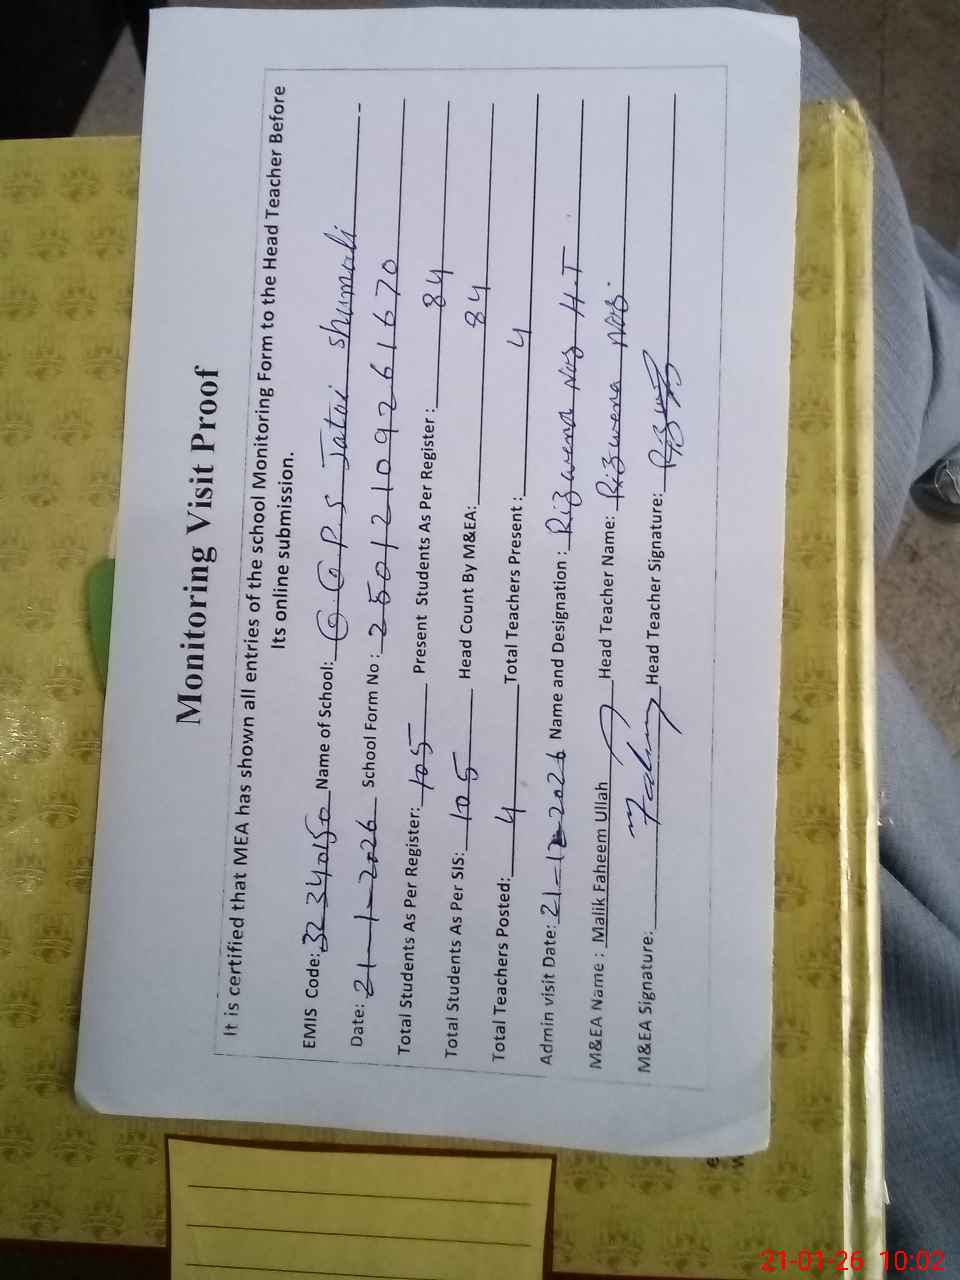 Monitoring Visit Proof
It is certified that MEA has shown all entries of the school Monitoring Form to the Head Teacher Before
Its online submission.
EMIS Code: 32340150 Name of School: G G P.S Jatoi shumali
Date: 21-1-2026 School Form No: 2501210926 1670
Total Students As Per Register: 105 Present Students As Per Register: 84
Total Students As Per SIS: 105 Head Count By M&EA: 84
Total Teachers Posted: 4 Total Teachers Present: 4
Admin visit Date: 21-1-2026 Name and Designation: Rizwena H.T
M&EA Name: Malik Faheem Ullah Head Teacher Name: Rizwena
M&EA Signature: Head Teacher Signature:
21-01-26 10:02